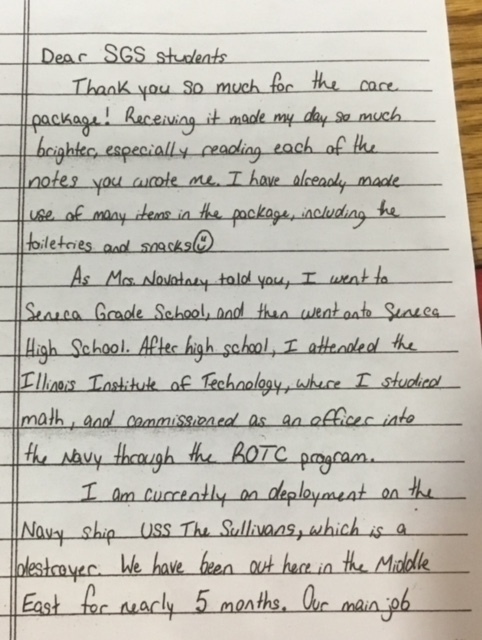 Dear SGS students
Thank you so much for the care
package! Receiving it made my day so much
brighter, especially reading each of the
notes you wrote me. I have already made
use of many items in the package, including the
toiletries and snacks☺
As Mrs. Novotney told you, I went to
Seneca Grade School, and then went onto Seneca
High School. After high school, I attended the
Illinois Institute of Technology, where I studied
math, and commissioned as an officer into
the Navy through the ROTC program.
I am currently on deployment on the
Navy ship USS The Sullivans, which is a
destroyer. We have been out here in the Middle
East for nearly 5 months. Our main job